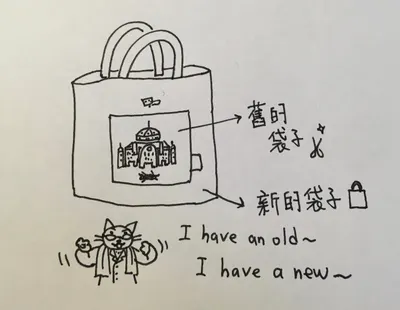 舊的
袋子
新的袋子
I have an old~
I have a new~